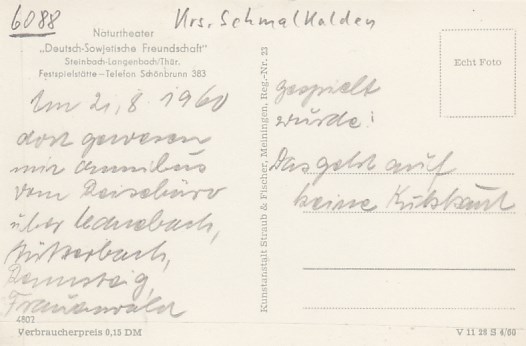 6088
Krs. Schmalkalden
Naturtheater
„Deutsch-Sowjetische Freundschaft"
Steinbach-Langenbach/Thür.
Festspielstätte – Telefon Schönbrunn 383
Am 21.8.1960
dort gewesen
mit Omnibus
vom Reisebüro
über
Stützerbach,
Rennsteig,
Frauenwald
4807
Verbraucherpreis 0,15 DM
Kunstanstalt Straub & Fischer, Meiningen, Reg.-Nr. 23
Echt Foto
gespielt
wurde:
Das geht auf
keine Kuhhaut
V 11 28 S 4/60